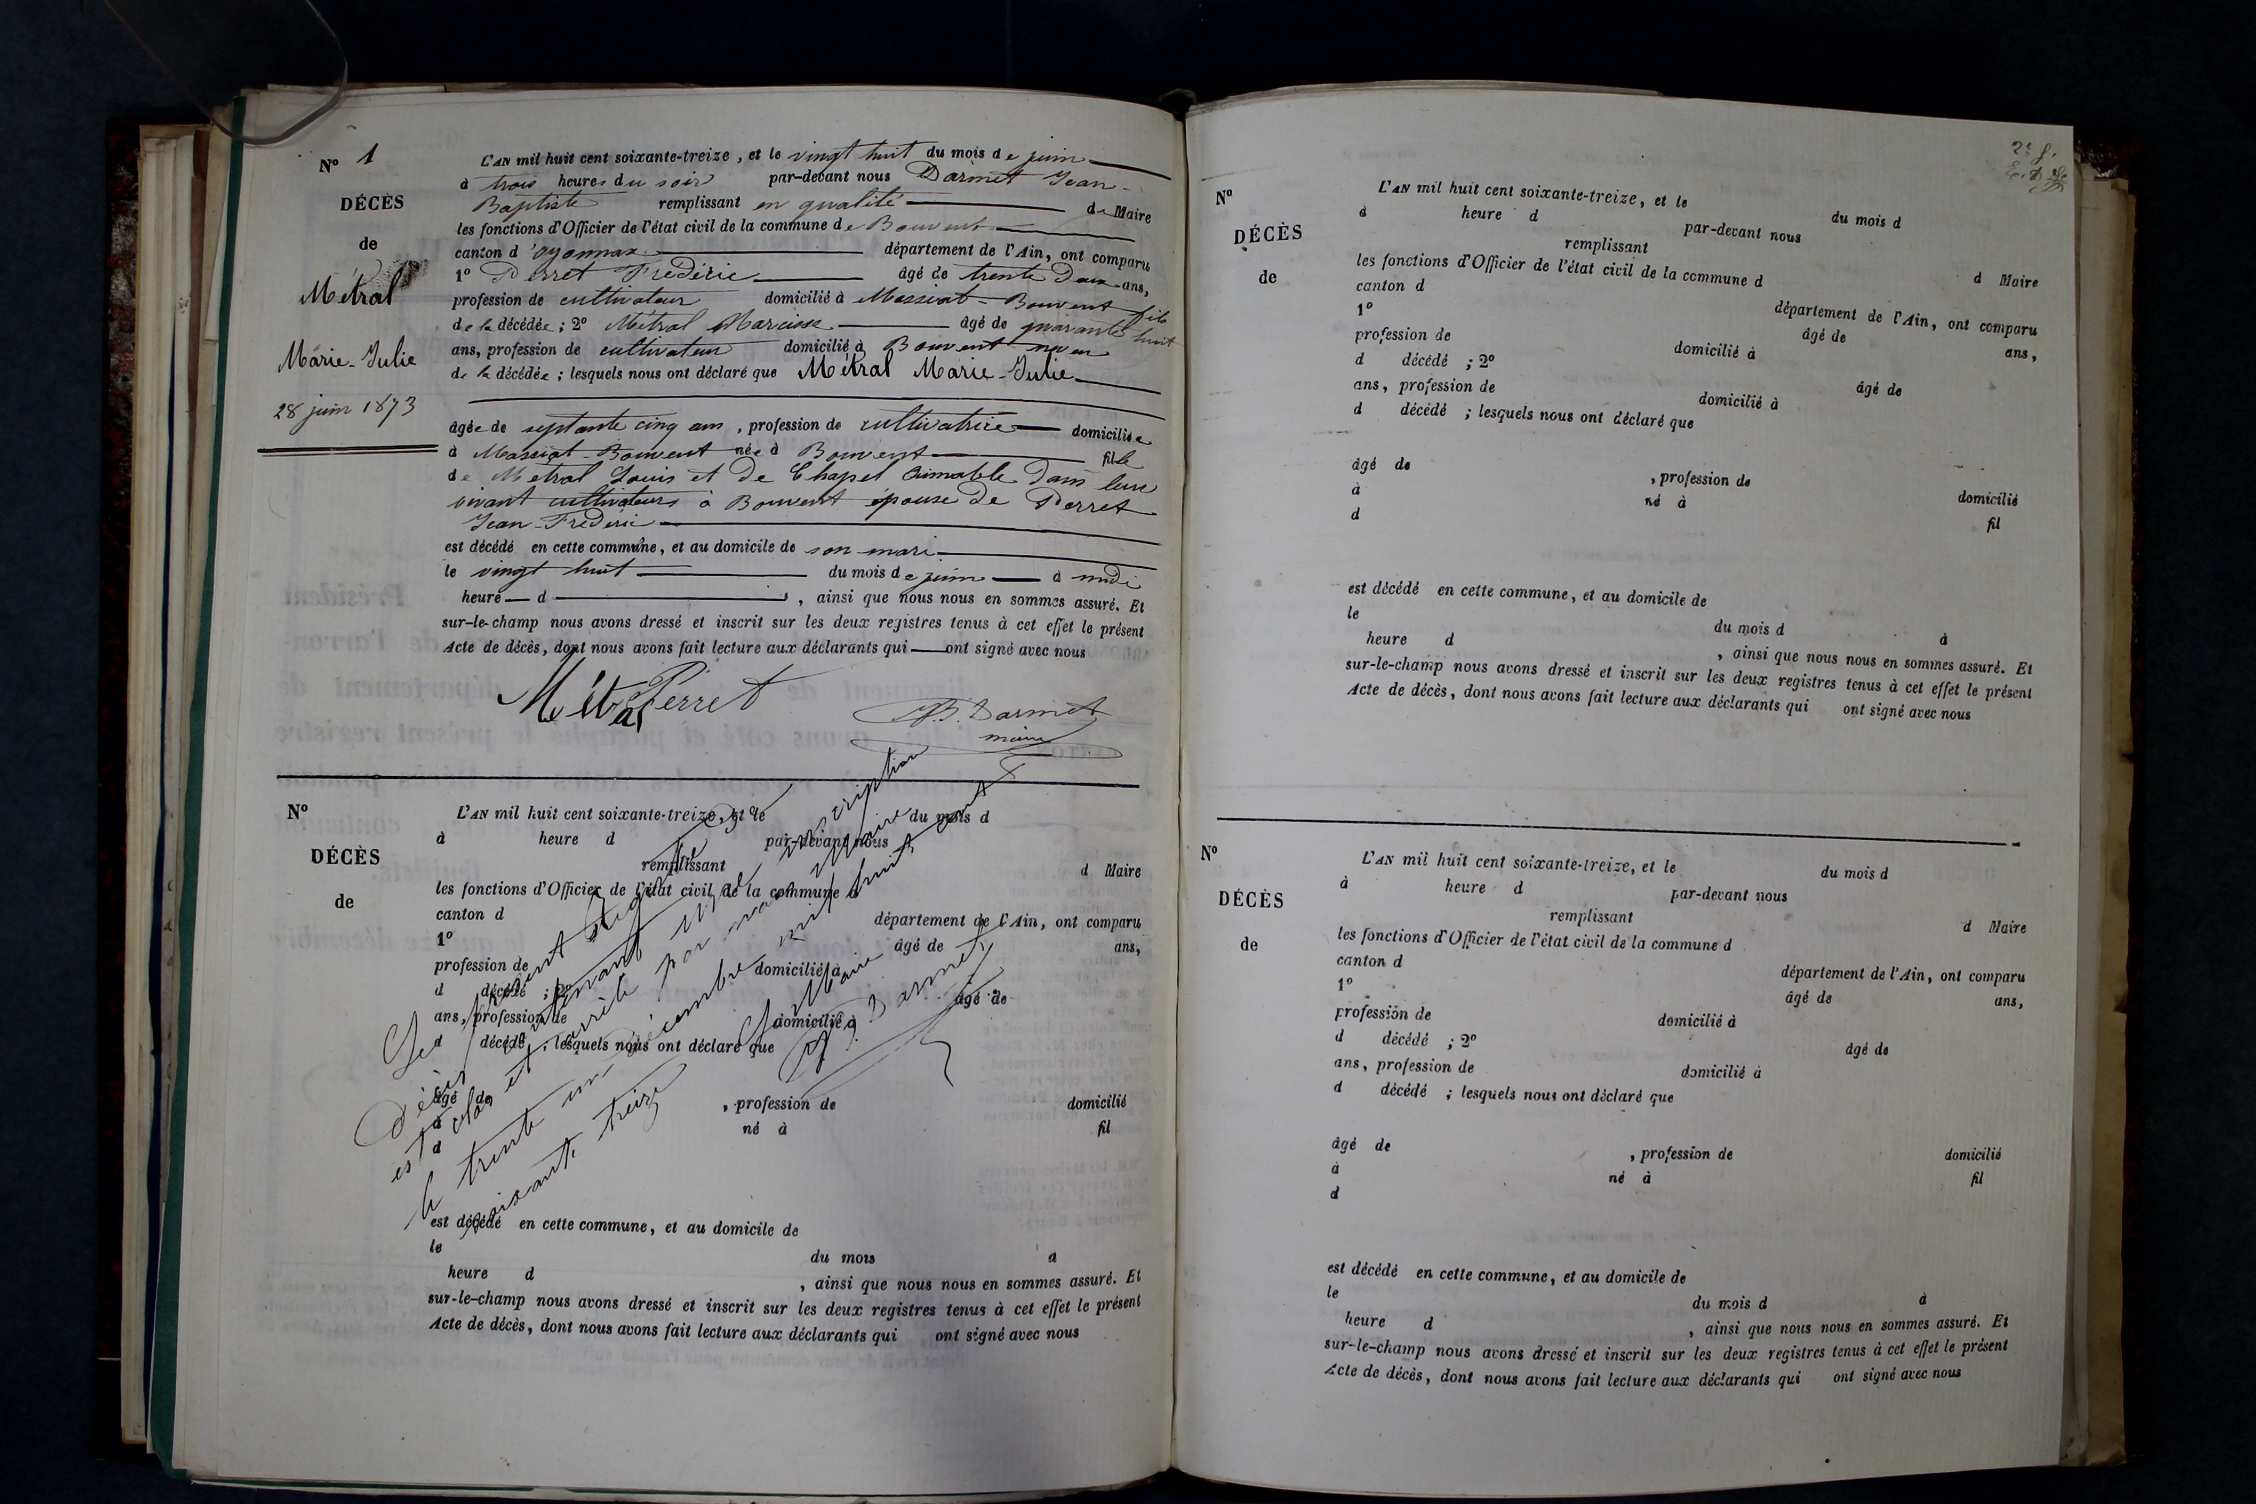 Nº 1
DÉCÈS
de
Métral
Marie-Julie
28 juin 1873
L'AN mil huit cent soixante-treize, et le vingt huit du mois de juin
à trois heures du soir par-devant nous Darmet Jean-
Baptiste remplissant en qualité de Maire
les fonctions d'Officier de l'état civil de la commune de Bouvent
canton d'oyonnax département de l'Ain, ont comparu
1º Perret Frédéric âgé de trente Deux ans,
profession de cultivateur domicilié à Massiat-Bouvent fils
de la décédée ; 2º Métral Narcisse âgé de quarante huit
ans, profession de cultivateur domicilié à Bouvent
de la décédée ; lesquels nous ont déclaré que Métral Marie-Julie
âgée de septante cinq ans, profession de cultivatrice domiciliée
à Massiat-Bouvent née à Bouvent fille
de Métral Louis et de Chapel Aimable Dans leur
vivant cultivateurs à Bouvent épouse de Perret
Jean-Frédéric
est décédé en cette commune, et au domicile de son mari
le vingt huit du mois de juin à midi
heure d , ainsi que nous nous en sommes assuré. Et
sur-le-champ nous avons dressé et inscrit sur les deux registres tenus à cet effet le présent
Acte de décès, dont nous avons fait lecture aux déclarants qui ont signé avec nous
Métral Perret
JB. Darmet
maire
Nº
DÉCÈS
de
L'AN mil huit cent soixante-treize, et le du mois d
à heure d par-devant nous
remplissant d Maire
les fonctions d'Officier de l'état civil de la commune d
canton d département de l'Ain, ont comparu
1º âgé de ans,
profession de domicilié à
d décédé ; 2º âgé de
ans, profession de domicilié à
d décédé ; lesquels nous ont déclaré que
âgé de , profession de domicilié
à né à fil
d
est décédé en cette commune, et au domicile de
le du mois à
heure d , ainsi que nous nous en sommes assuré. Et
sur-le-champ nous avons dressé et inscrit sur les deux registres tenus à cet effet le présent
Acte de décès, dont nous avons fait lecture aux déclarants qui ont signé avec nous
Le présent registre de
décès contenant une inscription
est clos et arrêté par nous maire
le trente un décembre mil huit cent
soixante treize
Le Maire
JB Darmet
2e f.
Nº
DÉCÈS
de
L'AN mil huit cent soixante-treize, et le du mois d
à heure d par-devant nous
remplissant d Maire
les fonctions d'Officier de l'état civil de la commune d
canton d département de l'Ain, ont comparu
1º âgé de ans,
profession de domicilié à
d décédé ; 2º âgé de
ans, profession de domicilié à
d décédé ; lesquels nous ont déclaré que
âgé de , profession de domicilié
à né à fil
d
est décédé en cette commune, et au domicile de
le du mois d à
heure d , ainsi que nous nous en sommes assuré. Et
sur-le-champ nous avons dressé et inscrit sur les deux registres tenus à cet effet le présent
Acte de décès, dont nous avons fait lecture aux déclarants qui ont signé avec nous
Nº
DÉCÈS
de
L'AN mil huit cent soixante-treize, et le du mois d
à heure d par-devant nous
remplissant d Maire
les fonctions d'Officier de l'état civil de la commune d
canton d département de l'Ain, ont comparu
1º âgé de ans,
profession de domicilié à
d décédé ; 2º âgé de
ans, profession de domicilié à
d décédé ; lesquels nous ont déclaré que
âgé de , profession de domicilié
à né à fil
d
est décédé en cette commune, et au domicile de
le du mois d à
heure d , ainsi que nous nous en sommes assuré. Et
sur-le-champ nous avons dressé et inscrit sur les deux registres tenus à cet effet le présent
Acte de décès, dont nous avons fait lecture aux déclarants qui ont signé avec nous